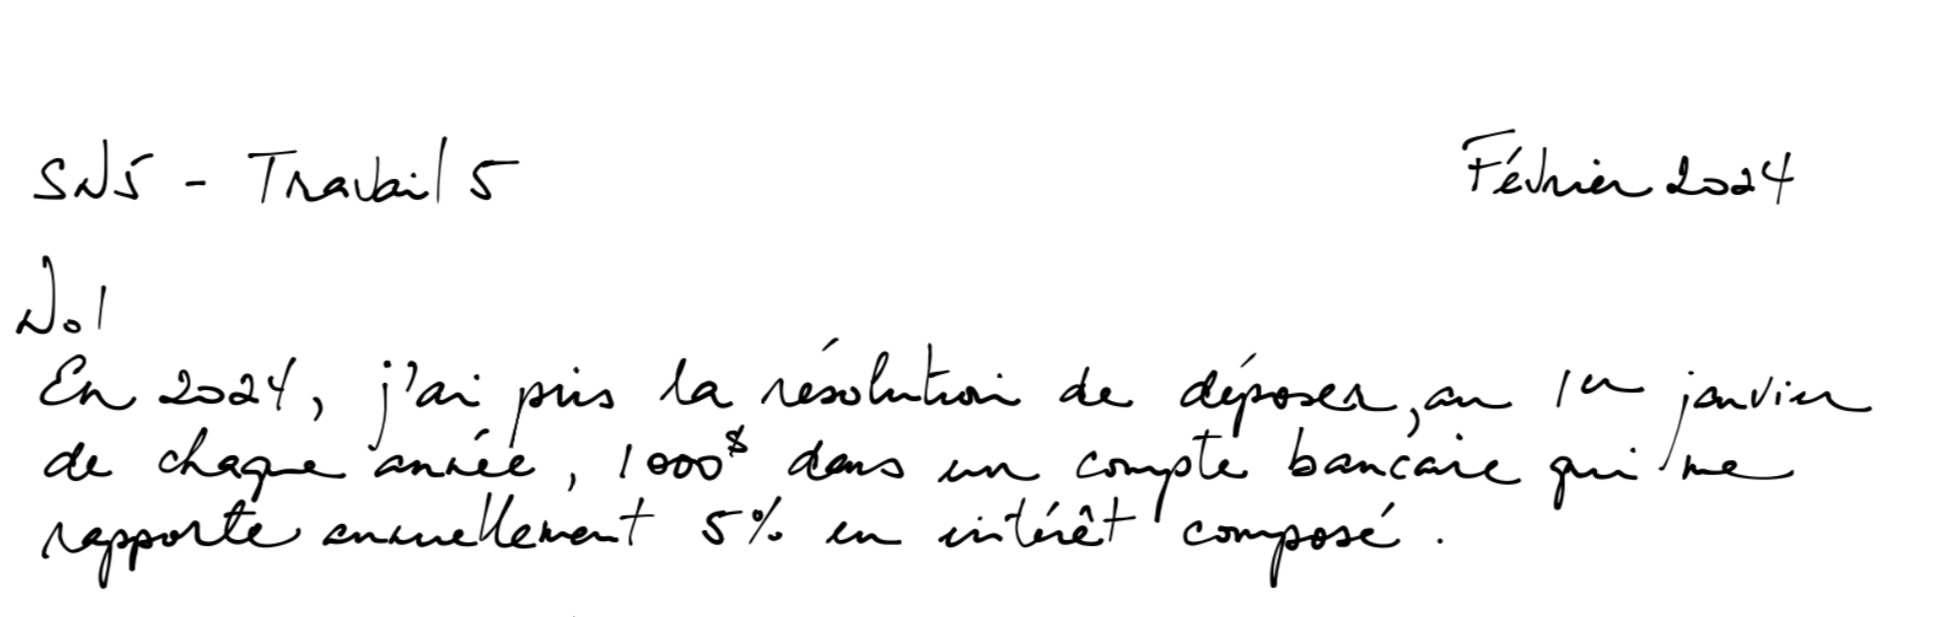 SN5 - Travail 5
Février 2024
No1
En 2024, j'ai pris la résolution de déposer, au 1er janvier
de chaque année, 1000$ dans un compte bancaire qui me
rapporte annuellement 5% en intérêt composé.